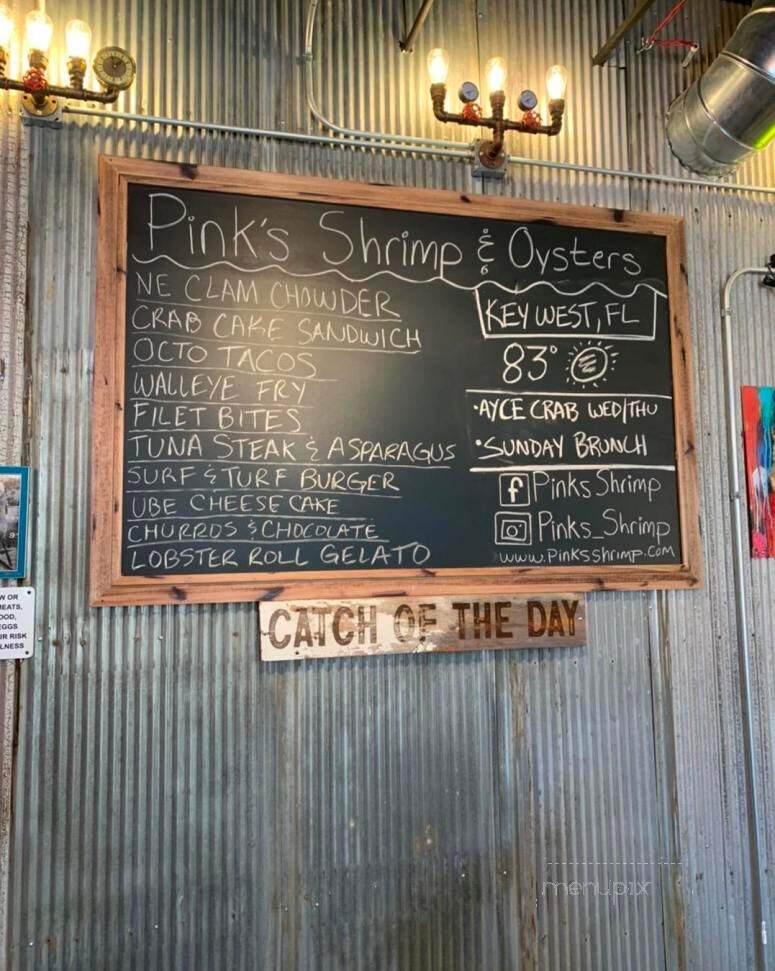 Pink's Shrimp & Oysters
NE CLAM CHOWDER
CRAB CAKE SANDWICH
OCTO TACOS
WALLEYE FRY
FILET BITES
TUNA STEAK & ASPARAGUS
SURF & TURF BURGER
UBE CHEESE CAKE
CHURROS & CHOCOLATE
LOBSTER ROLL GELATO
KEY WEST, FL
83°
•AYCE CRAB WED/THU
•SUNDAY BRUNCH
f Pinks Shrimp
Pinks_Shrimp
www.Pinksshrimp.com
CATCH OF THE DAY
W OR
EATS,
OOD,
EGGS
UR RISK
LNESS
menupix